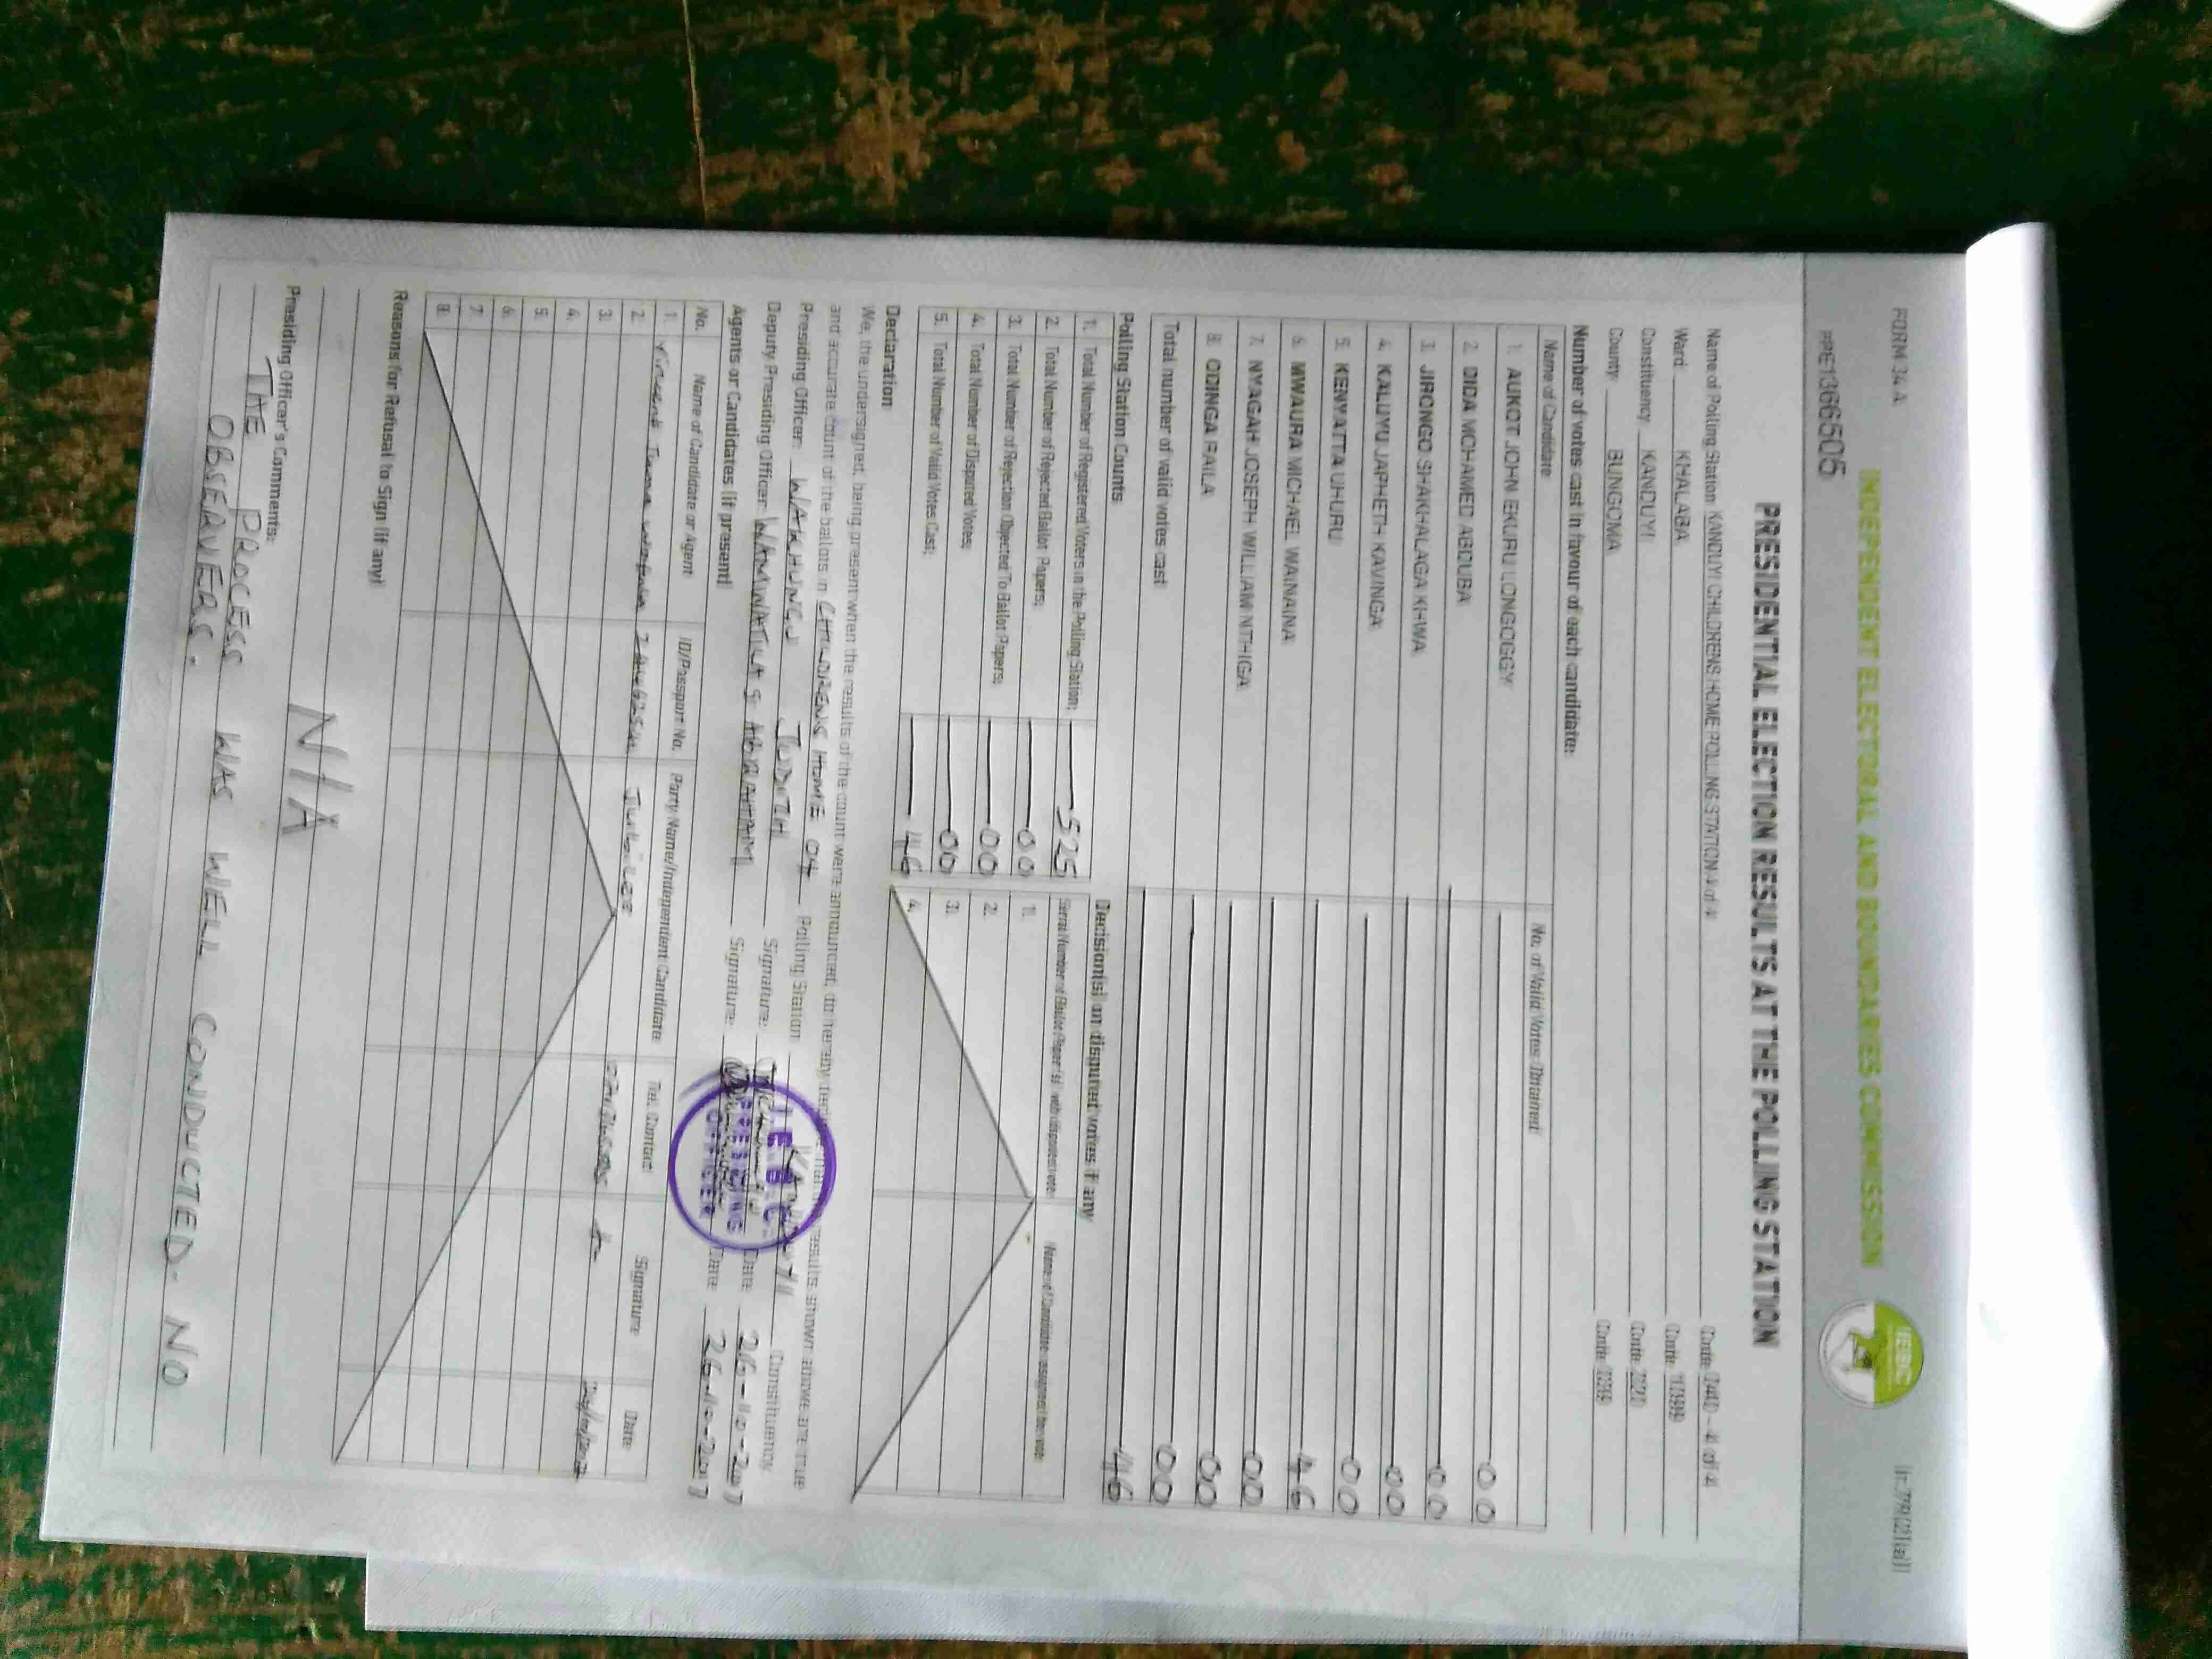 FORM 34A
[r.79(2)(a)]
INDEPENDENT ELECTORAL AND BOUNDARIES COMMISSION
IEBC
PPE1366505
PRESIDENTIAL ELECTION RESULTS AT THE POLLING STATION
Name of Polling Station KANDUYI CHILDRENS HOME POLLING STATION 4 of 4 Code 040 - 4 of 4
Ward KHALABA Code
Constituency KANDUYI Code
County BUNGOMA Code 039
Number of votes cast in favour of each candidate:
Name of Candidate No. of Valid Votes Obtained
1. AUKOT JOHN EKURU LONGOGGY 00
2. DIDA MOHAMED ABDUBA 00
3. JIRONGO SHAKHALAGA KHWA 00
4. KALUYU JAPHETH KAVINGA 00
5. KENYATTA UHURU 46
6. MWAURA MICHAEL WAINAINA 00
7. NYAGAH JOSEPH WILLIAM NTHIGA 00
8. ODINGA RAILA 00
Total number of valid votes cast 46
Polling Station Counts
1. Total Number of Registered Voters in the Polling Station; 525
2. Total Number of Rejected Ballot Papers; 00
3. Total Number of Rejection Objected To Ballot Papers; 00
4. Total Number of Disputed Votes; 00
5. Total Number of Valid Votes Cast; 46
Decision(s) on disputed votes if any
Serial Number of Ballot Paper (s) with disputed vote Name of Candidate assigned the vote
1.
2.
3.
4.
Declaration
We, the undersigned, being present when the results of the count were announced, do hereby declare that the results shown above are true
and accurate count of the ballots in CHILDRENS HOME 04 Polling Station KANDUYI Constituency
Presiding Officer: WAKHUNGU JUDITH Signature: Date 26-10-2017
Deputy Presiding Officer: ABRAHAM Signature: Date 26-10-2017
I.E.B.C
PRESIDING
OFFICER
Agents or Candidates (if present)
No. Name of Candidate or Agent ID/Passport No. Party Name/Independent Candidate Tel. Contact Signature Date
1. Jubilee
2.
3.
4.
5.
6.
7.
8.
Reasons for Refusal to Sign (if any)
N/A
Presiding Officer's Comments:
THE PROCESS WAS WELL CONDUCTED. NO
OBSERVERS.